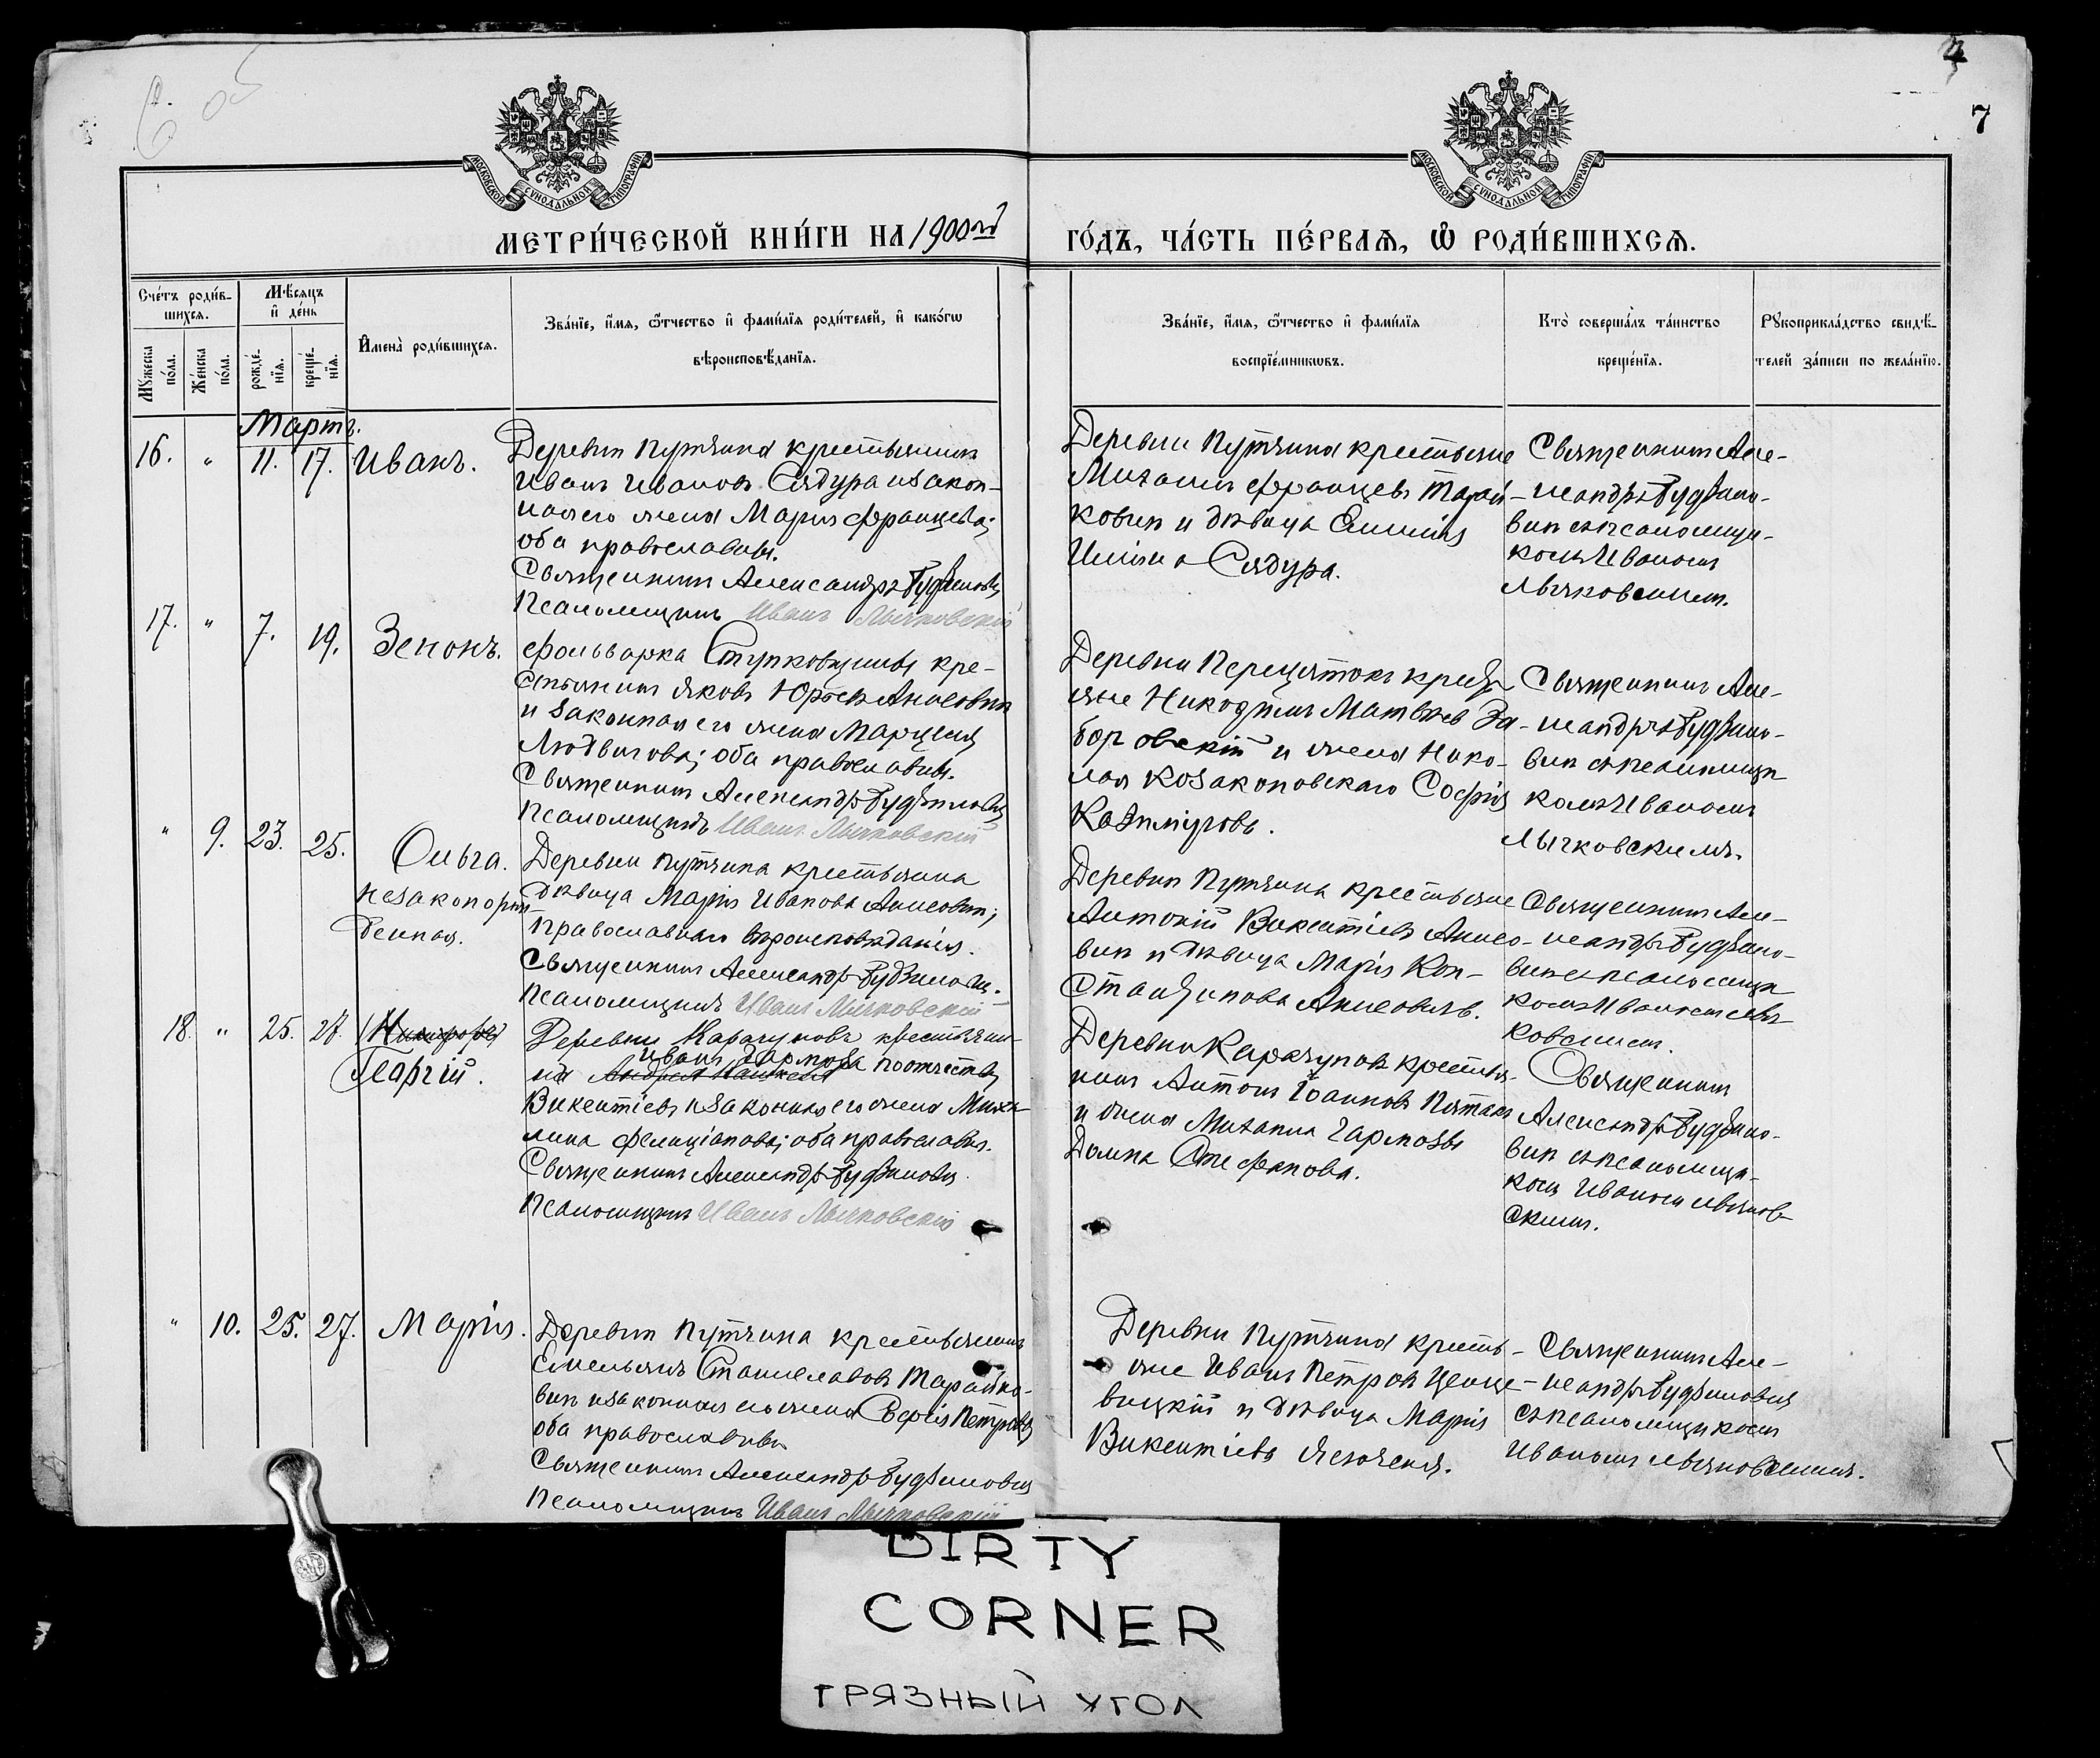 7
МОСКОВСКОЙ СѴНОДАЛЬНОЙ ТИПОГРАФІИ
МОСКОВСКОЙ СѴНОДАЛЬНОЙ ТИПОГРАФІИ
МЕТРИ́ЧЕСКОЙ КНИ́ГИ НА 1900й
ГО́ДЪ, ЧА́СТЬ ПЕ́РВАЯ, Ѡ РОДИ́ВШИХСЯ.
Сче́тъ роди́в-
шихся.
Мꙋ́жеска по́ла.
Же́нска по́ла.
Мѣ́сяцъ
и҆ де́нь
рожде́-
нїя.
креще́-
нїя.
И҆мена̀ роди́вшихся.
Зва́нїе, и҆́мя, ѻ҆́тчество и҆ фами́лїя роди́телей, и҆ како́гѡ
вѣроисповѣ́данїя.
Зва́нїе, и҆́мя, ѻ҆́тчество и҆ фами́лїя
воспрїе́мникѡвъ.
Кто̀ соверша́лъ та́инство
креще́нїя.
Рꙋкоприкла́дство свидѣ́-
телей за́писи по жела́нїю.
Мартъ.
16. " 11. 17. Иванъ.
Деревни Путчина крестьянинъ
Иванъ Ивановъ Сядура и закон-
ная его жена Марія Францева;
оба православны.
Священникъ Александръ Будзиловичъ
Псаломщикъ Иванъ Лычковскій
Деревни Путчина крестьяне
Михаилъ Францевъ Тарай-
ковичъ и дѣвица
Сядура.
Священникъ Але-
ксандръ Будзило-
вичъ съ псаломщи-
комъ Иваномъ
Лычковскимъ.
17. " 7. 19. Зенонъ.
Фольварка Ступковщины кре-
стьянинъ Яковъ Юрьевъ Анисовичъ
и законная его жена Марцеля
Людвигова; оба православны.
Священникъ Александръ Будзиловичъ
Псаломщикъ Иванъ Лычковскій
Деревни крестья-
яне Никодимъ Матвѣевъ За-
боровскій и жена Нико-
лая Козаковскаго Софія
Казимірова.
Священникъ Але-
ксандръ Будзило-
вичъ съ псаломщи-
комъ Иваномъ
Лычковскимъ.
" 9. 23. 25. Ольга.
незаконорож-
денная.
Деревни Путчина крестьянка
дѣвица Марія Иванова Анисовичъ;
православнаго вѣроисповѣданія.
Священникъ Александръ Будзиловичъ.
Псаломщикъ Иванъ Лычковскій
Деревни Путчина крестьяне
Антоній Викентіевъ Анисо-
вичъ и дѣвица Марія Кон-
стантинова Анисовичъ.
Священникъ Але-
ксандръ Будзило-
вичъ съ псаломщи-
комъ Иваномъ Лыч-
ковскимъ.
18. " 25. 27. Никифоръ
Георгій.
Деревни Карачуновъ крестьяни-
Иванъ Гармоза
на по отчеству
Викентіевъ и законная его жена Миха-
лина Фелиціанова; оба православны.
Священникъ Александръ Будзиловичъ
Псаломщикъ Иванъ Лычковскій
Деревни Карачуновъ крестья-
нинъ Антонъ Іоанновъ
и жена Михаила Гармозы
Домна Стефанова.
Священникъ
Александръ Будзило-
вичъ съ псаломщи-
комъ Иваномъ Лычков-
скимъ.
" 10. 25. 27. Марія.
Деревни Путчина крестьянинъ
Емельянъ Станиславовъ Тарайко-
вичъ и законная его жена Софія Петрова
оба православны
Священникъ Александръ Будзиловичъ
Псаломщикъ Иванъ Лычковскій
Деревни Путчина кресть-
яне Иванъ Петровъ
и дѣвица Марія
Викентіева
Священникъ Але-
ксандръ Будзиловичъ
съ псаломщикомъ
Иваномъ Лычковскимъ.
DIRTY
CORNER
ГРЯЗНЫЙ УГОЛ